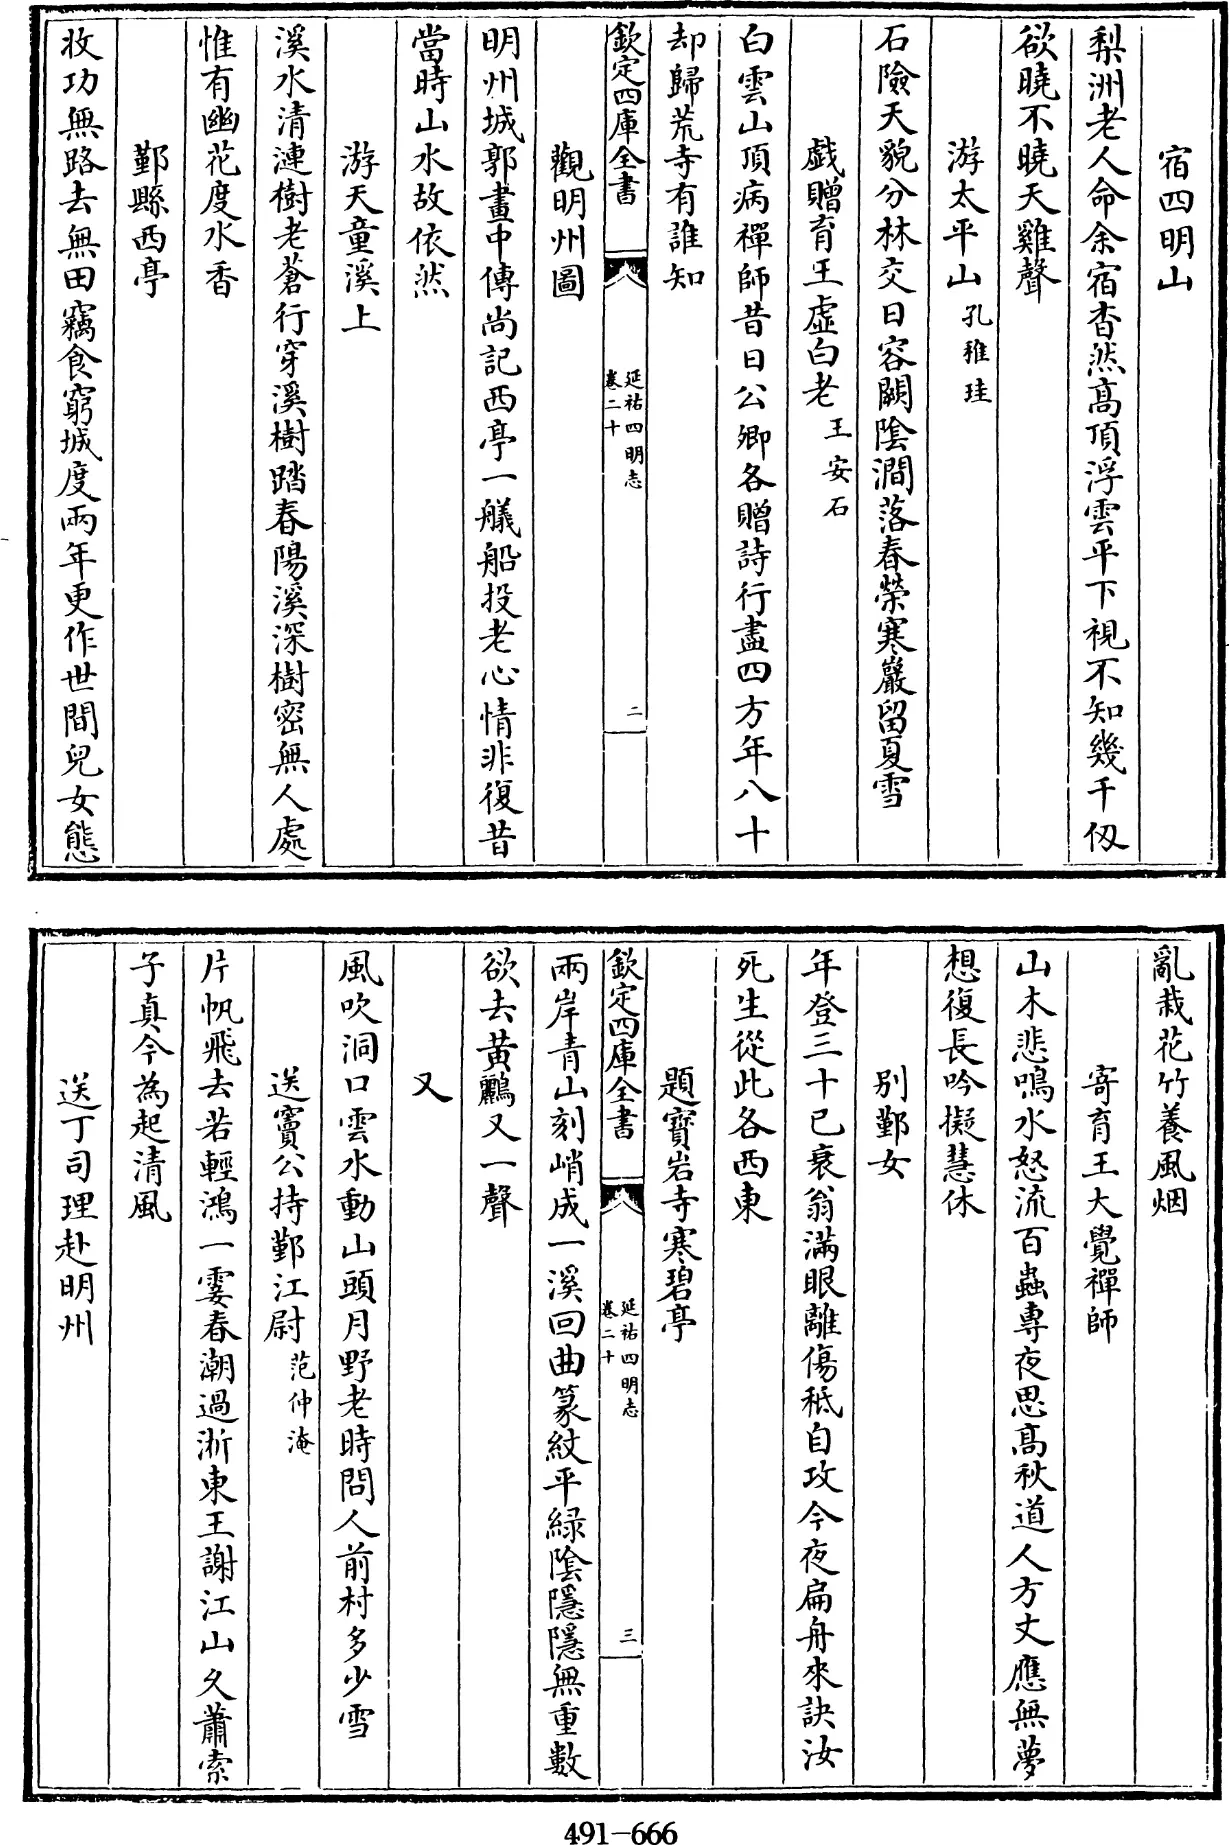 宿四明山
梨洲老人命余宿杳然髙頂浮雲平下視不知幾千仭
欲曉不曉天雞聲
游太平山 孔稚珪
石險天貌分林交日容闕陰澗落春榮寒巖留夏雪
戯贈育王虚白老 王安石
白雲山頂病禪師昔日公卿各贈詩行盡四方年八十
却歸荒寺有誰知
欽定四庫全書
延祐四明志
卷二十
二
觀明州圖
明州城郭畫中傳尚記西亭一艤船投老心情非復昔
當時山水故依然
游天童溪上
溪水清漣樹老蒼行穿溪樹踏春陽溪深樹密無人處
惟有幽花度水香
鄞縣西亭
收功無路去無田竊食窮城度兩年更作世間兒女態
亂栽花竹養風烟
寄育王大覺禪師
山木悲鳴水怒流百蟲專夜思髙秋道人方丈應無夢
想復長吟擬慧休
別鄞女
年登三十已衰翁滿眼離傷秪自攻今夜扁舟來訣汝
死生從此各西東
題寳岩寺寒碧亭
欽定四庫全書
延祐四明志
卷二十
三
兩岸青山刻峭成一溪回曲篆紋平緑陰隱隱無重數
欲去黄鸝又一聲
又
風吹洞口雲水動山頭月野老時問人前村多少雪
送竇公持鄞江尉 范仲淹
片帆飛去若輕鴻一霎春潮過浙東王謝江山久蕭索
子真今為起清風
送丁司理赴明州
491-666